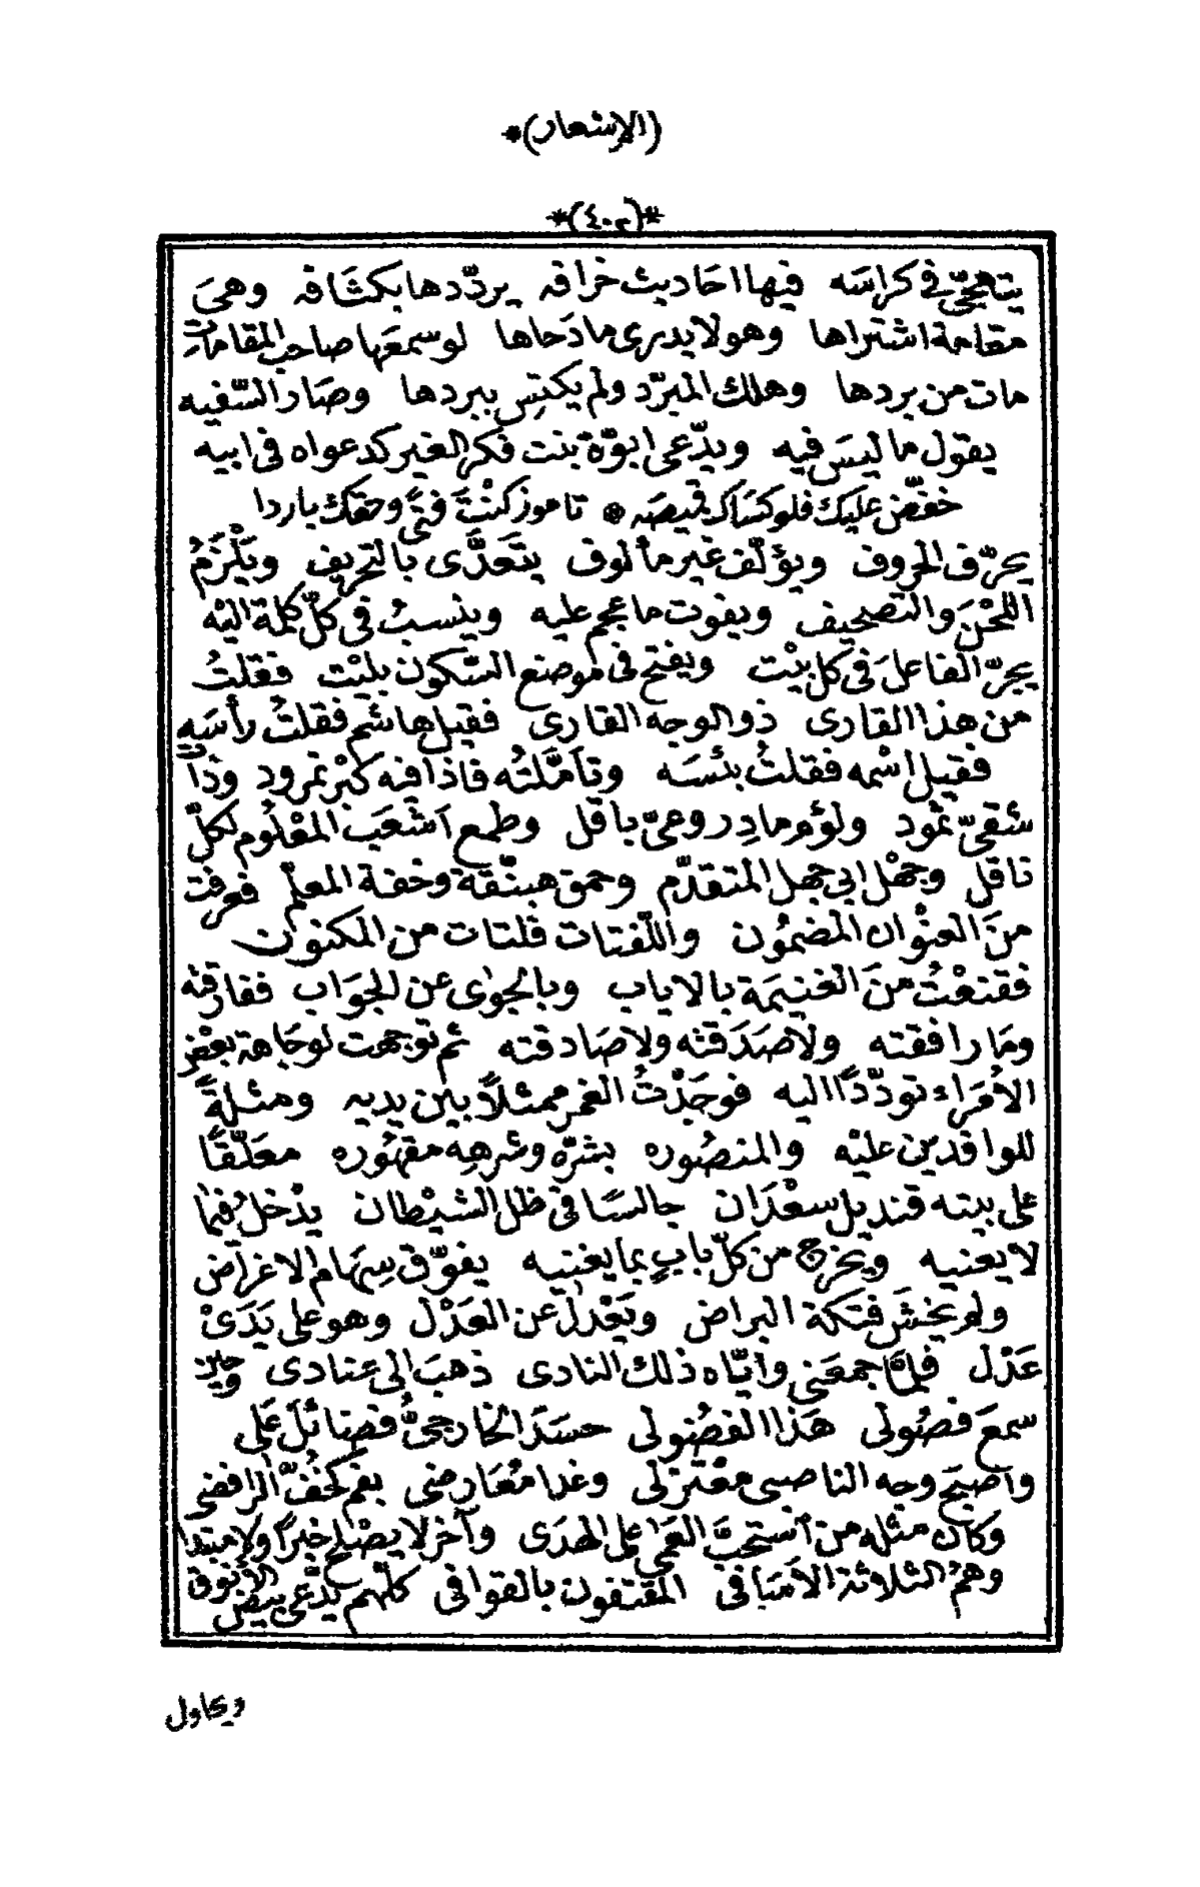 (الإشعار)*
*(٤٠٢)*
يتهجّى فى كراسه فيها احاديث خرافه يردّدها بكشافه وهى
مقامة اشتراها وهو لا يدرى ما دَحاها لو سمعها صاحب المقامات
مات من بردها وهلك المبرّد ولم يكتس ببردها وصَار السّفيه
يقول ما ليسَ فيه ويدّعى ابوّة بنت فكر الغير كدعواه فى ابيه
خفّض عليك فلو كسَاك قميصَه * تاموز كنْتَ فتًى وحقك باردا
يحرّف الحروف ويؤلّف غير مألوف يتَعدَّى بالتحريف ويَلْزَمُ
اللّحْنَ والتصحيف ويفوت ما عجم عليه وينسبُ فى كلّ كلمة اليْه
يجرّ الفاعلَ فى كل بيْت ويفتح فى موضع السّكون بليْت فقلتُ
من هذا القارى ذو الوجه القارى فقيل هاشم فقلتُ رأسَه
فقيل اسْمه فقلتُ بئسَه وتأمّلتُه فاذا فيه كبْر نمرود وذا
شقىّ ثمود ولؤم مادِر وعىّ باقل وطمع اَشعَب المعْلُوم لكلّ
ناقل وجهْل ابى جهل المتقدّم وحمق هبنّقة وخفة المعلّم فعرفت
منَ العنْوان المضمُون واللّفتات فلتات من المكنوان
فقنعْتُ منَ الغنيمَة بالاياب وبالجوٰى عن الجوَاب ففارقته
ومَا رافقته ولا صَدَقته ولا صَادقته ثم توجهت لوجَاهة بعْض
الاُمَراء تودّدًا اليه فوجَدْتُ الغمر ممثلاً بين يديه ومثلةً
للوافدين عليْه والمنصُوره بشرّه وشرهِه مقهُوره معَلّقًا
على بيته قنديل سعْدَان جالسًا فى ظل الشيْطان يدْخلُ فيما
لا يعنيه ويخرج من كلّ بابٍ بما يغنيه يفوّق سِهَام الاغرَاض
ولم يخشَ فتكة البراض ويَعْدلُ عن العَدْل وهو على يَدَىْ
عَدْل فلمَّا جمعَنى وايّاه ذلك النادى ذهبَ الى عنادى وحين
سمعَ فصُولى هَذا الفضُولى حسَدَ الخارجىُّ فضائلَ عَلى
وأصْبحَ وجه الناصبى معْتزلى وغدا مُعَارضى بفم كخُفّ الرافضى
وكان مثله من اَستحبَّ العَمٰى على الهدَى وآخر لا يصْلح خبرًا ولا مبتدا
وهمُ الثلاثة الاَثَافى المقتفون بالقوافى كلّهم يدَّعى بيض الاَنوق
ويحاول